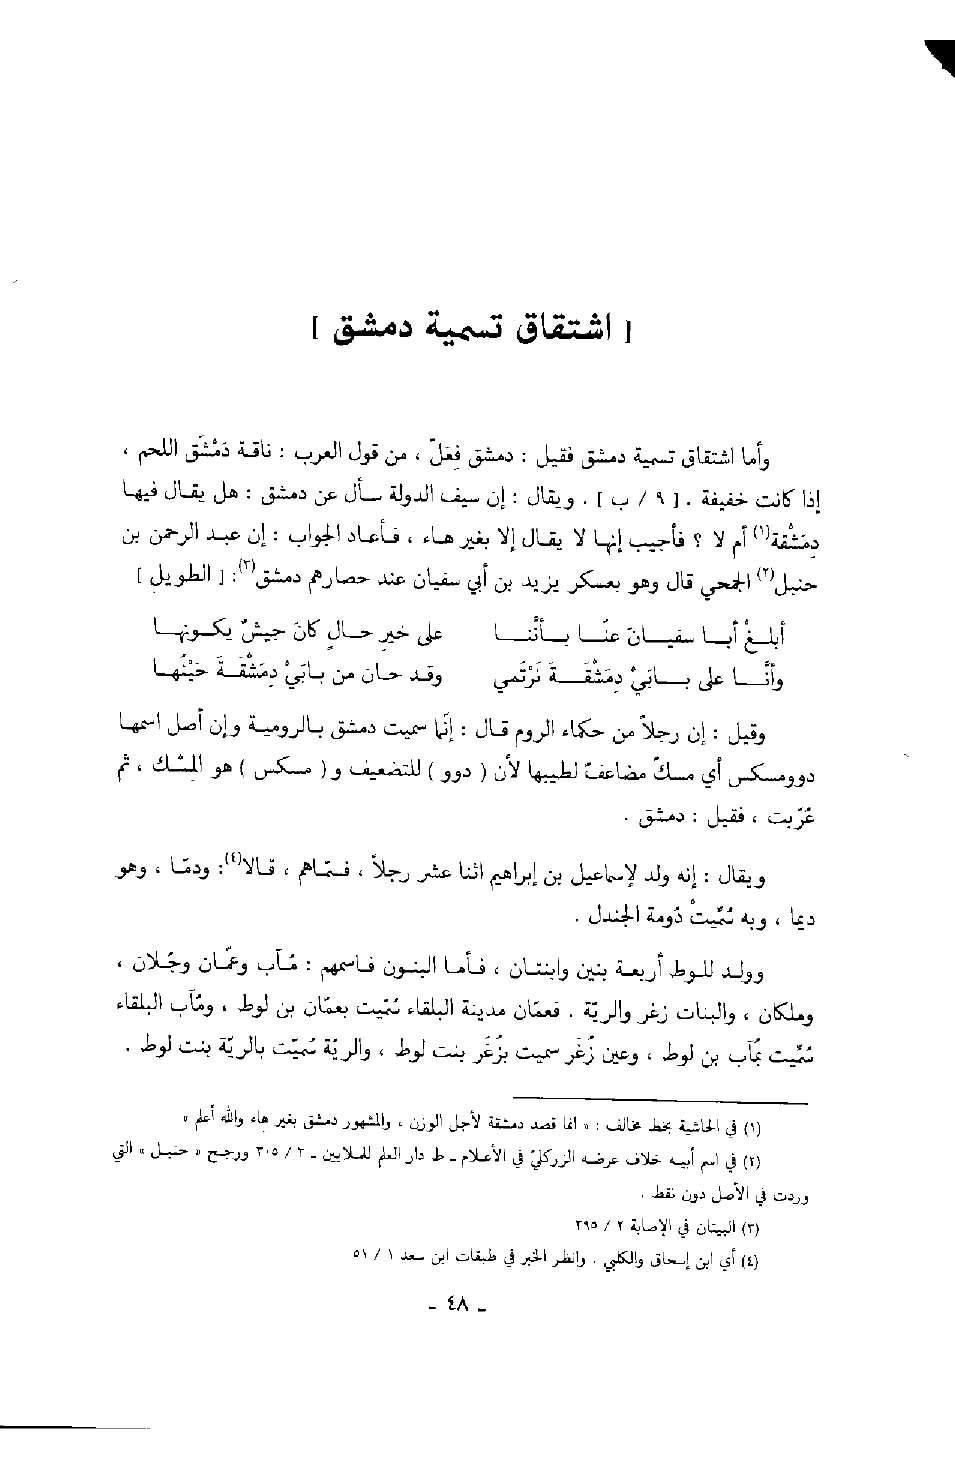 [ اشتقاق تسمية دمشق ]
وأما اشتقاق تسمية دمشق فقيل : دمشق فِعَلّ ، من قول العرب : ناقة دَمْشَق اللحم ،
إذا كانت خفيفة . [ ٩ / ب ] . ويقال : إن سيف الدولة سأل عن دمشق : هل يقال فيها
دِمَشْقة(١) أم لا ؟ فأجيب إنها لا يقال إلا بغير هاء ، فأعاد الجواب : إن عبد الرحمن بن
حنبل(٢) الجمحي قال وهو بعسكر يزيد بن أبي سفيان عند حصارهم دمشق(٣): [ الطويل ]
أبلغْ أبا سفيانَ عنّا بأنَّنا على خيرِ حالٍ كانَ جيشٌ يكونُها
وأنّا على بابَيْ دِمَشْقَةَ نَرْتَمي وقد حان من بابَيْ دِمَشْقَةَ حَيْنُها
وقيل : إن رجلاً من حكاء الروم قال : إنّما سميت دمشق بالرومية وإن أصل اسمها
دوومسكس أي مسكٌ مضاعفٌ لطيبها لأن ( دوو ) للتضعيف و( مسكس ) هو المِسْك ، ثم
عُرّبت ، فقيل : دمشق .
ويقال : إنه ولد لإسماعيل بن إبراهيم اثنا عشر رجلاً ، فسمّاهم ، قالا(٤): ودمّا ، وهو
ديما ، وبه سُمّيتْ دُومة الجندل .
وولد للوط أربعة بنين وابنتان ، فأما البنون فاسمهم : مآب وعمّان وجَلان ،
وملكان ، والبنات زغر والريّة . فعمّان مدينة البلقاء سُمّيت بعمّان بن لوط ، ومآب البلقاء
سُمِّيت بمآب بن لوط ، وعين زُغَر سميت بزُغَر بنت لوط ، والريّة سُميّت بالريّة بنت لوط .
(١) في الحاشية بخط مخالف : « انما قصد دمشقة لأجل الوزن ، والمشهور دمشق بغير هاء والله أعلم »
(٢) في اسم أبيه خلاف عرضه الزركليّ في الأعلام ـ ط دار العلم للملايين ـ ٣ / ٣٠٥ ورجح « حنبل » التي
وردت في الأصل دون نقط .
(٣) البيتان في الإصابة ٢ / ٣٩٥
(٤) أي ابن إسحاق والكلبي . وانظر الخبر في طبقات ابن سعد ١ / ٥١
ـ ٤٨ ـ